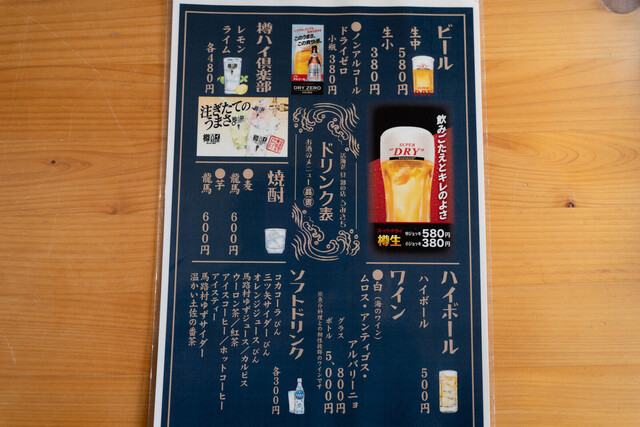 ビール
生中 580円
生小 380円
●ノンアルコール
ドライゼロ
小瓶 380円
DRY ZERO
樽ハイ倶楽部
レモン
ライム
各480円
飲みごたえとキレのよさ
SUPER
"DRY"
樽生
中ジョッキ 580円
小ジョッキ 380円
ドリンク表
お酒のメニュー
注ぎたての
うまさで
焼酎
●麦
龍馬 600円
●芋
龍馬 600円
ハイボール
ハイボール 500円
ワイン
●白(海のワイン)
ムロス・アンティゴス・
アルバリーニョ
グラス 800円
ボトル 5、000円
※魚介料理との相性抜群のワインです
ソフトドリンク
各300円
コカコーラ びん
三ツ矢サイダー びん
オレンジジュース びん
馬路村ゆずジュース/カルピス
ウーロン茶/紅茶
アイスコーヒー/ホットコーヒー
アイスティー
馬路村ゆずサイダー
温かい土佐の番茶